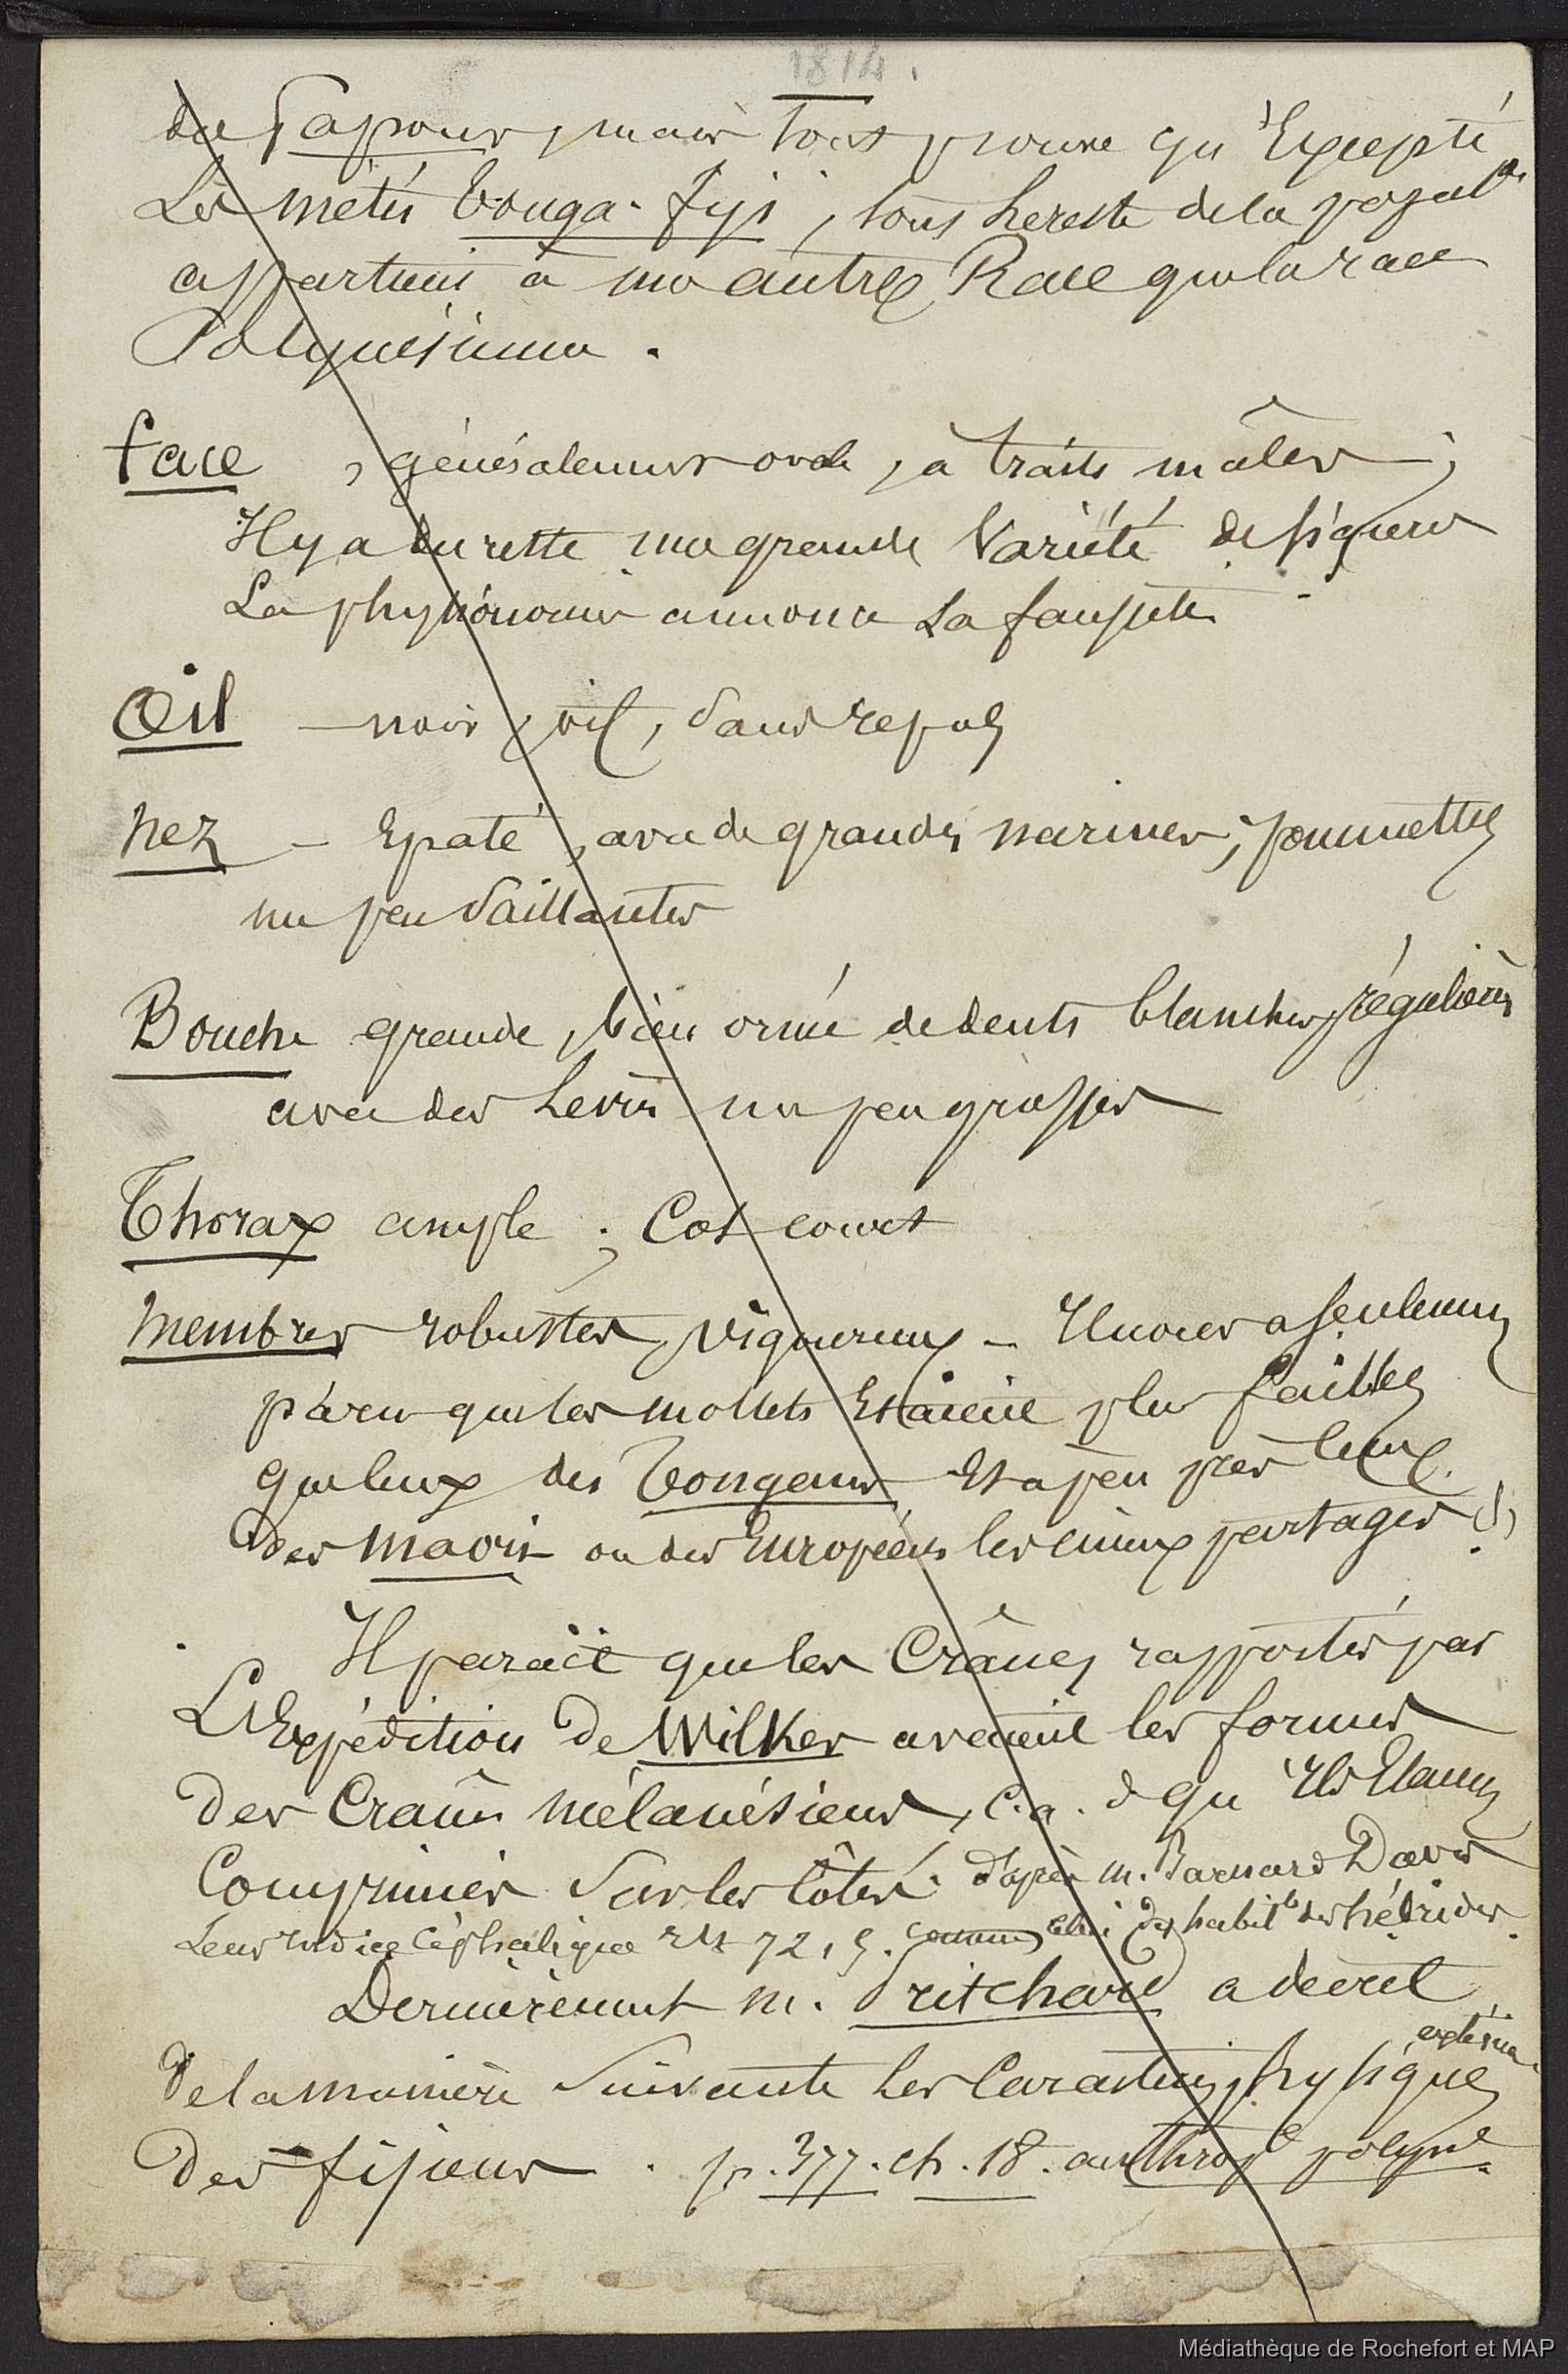 1814.
des Papous, mais tout prouve qu'Excepté
Les métis Tonga-fiji, tout le reste de la popul.on
appartient à une autre Race que la race
Polynésienne.
face, généralement ovale, à traits mâles;
Il y a du reste une grande Variété de figures
La physionomie annonce La fausseté
Œil — noir, vif, Sans repos
Nez — Epaté, avec de grandes narines; pommettes
un peu Saillantes
Bouche grande, bien ornée de dents blanches, régulières
avec des Lèvres un peu grosses
Thorax ample; Col court
Membres robustes, vigoureux — Il nous a seulement
paru que les mollets Etaient plus faibles
que ceux des Tongans Et à peu près ceux
des maoris ou des Européens les mieux partagés
Il parait que les Crânes rapportés par
L'Expédition de Wilkes avaient les formes
des Crânes mélanésiens, c.a.d qu'ils Etaient
Comprimés Sur les côtés. d'après m. Barnard Davis
Leur indice céphalique Est 72,5. comme celui des habit.ts des hébrides.
Dernièrement m. Pritchard a decrit
de la manière Suivante les Caractères physiques
externes
des fijiens. p. 377. ch. 18. anthrop.e polyn.e
Médiathèque de Rochefort et MAP